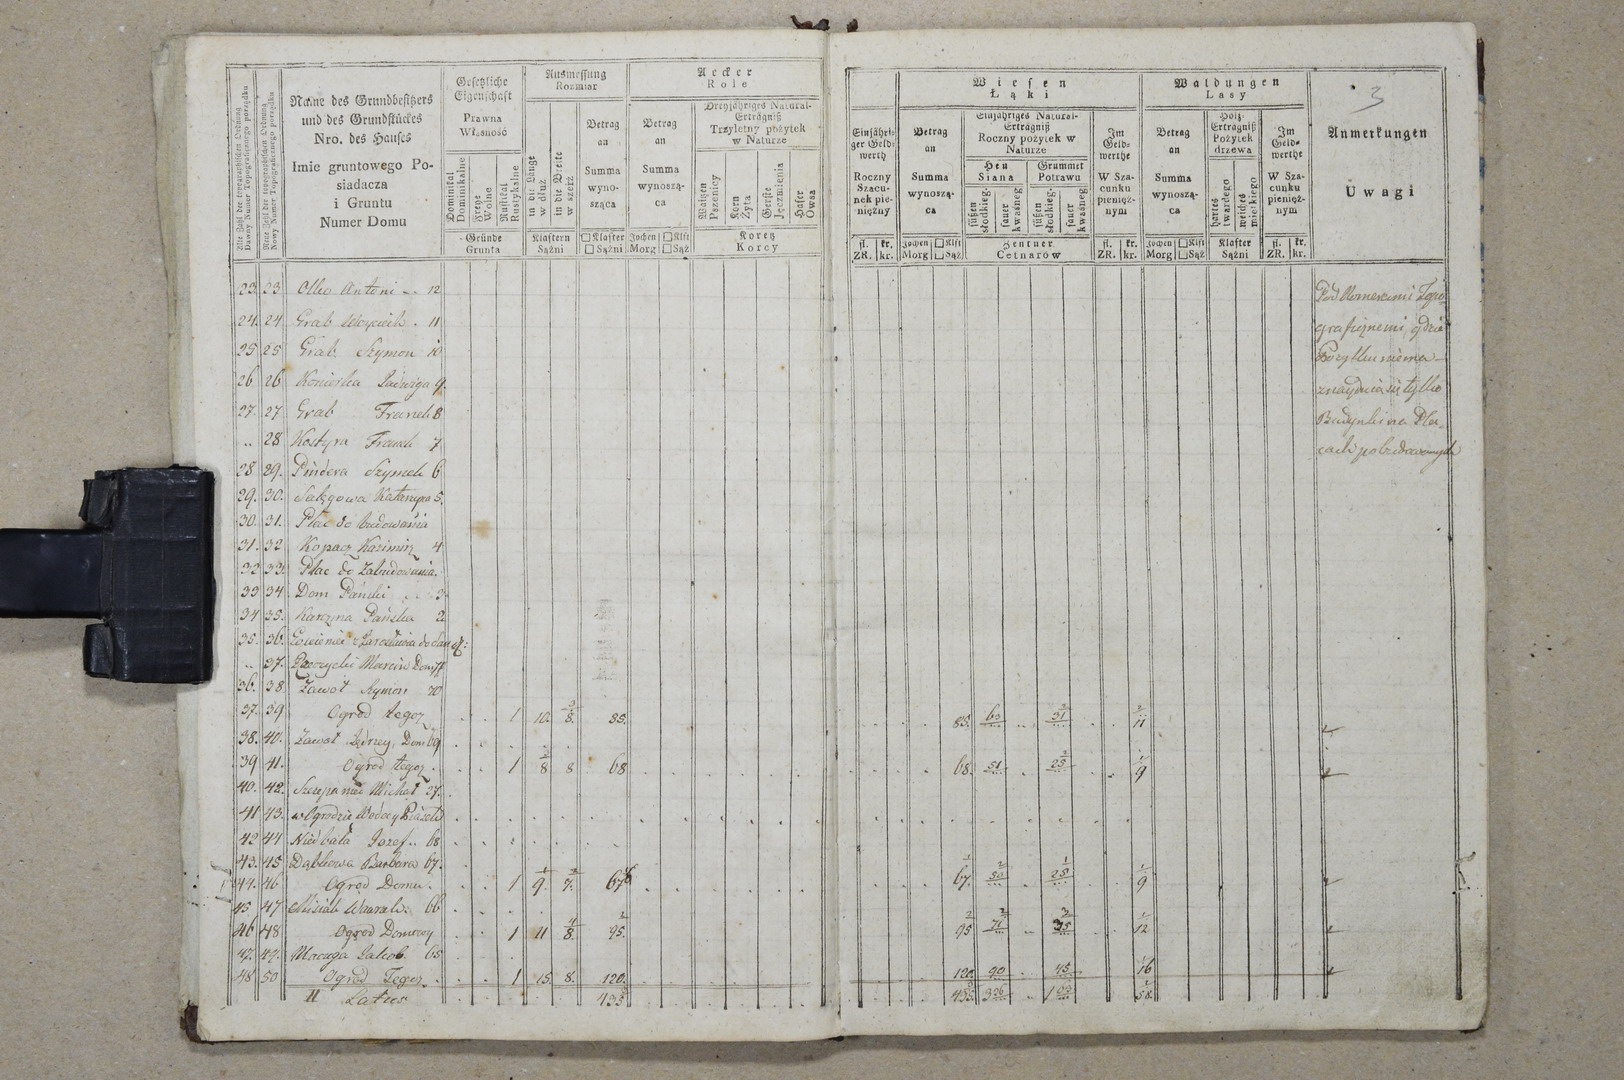 Alte Zahl der topographischen Ordnung
Dawny Numer Topograficznego porządku
Neue Zahl der topographischen Ordnung
Nowy Numer Topograficznego porządku
Name des Grundbesitzers
und des Grundstückes
Nro. des Hauses
Imie gruntowego Po-
siadacza
i Gruntu
Numer Domu
Gesetzliche
Eigenschaft
Prawna
Własność
Dominikal
Dominikalne
Freye
Wolne
Rustikal
Rustykalne
Gründe
Grunta
Ausmessung
Rozmiar
in die Länge
w dłuż
in die Breite
w szerz
Klaftern
Sążni
Betrag
an
Summa
wyno-
sząca
Klafter
Sążni
Aecker
Role
Betrag
an
Summa
wynoszą-
ca
Jochen
Morg
Klft
Sąż
Dreyjähriges Natural-
Erträgniß
Trzyletny pożytek
w Naturze
Waitzen
Pszenicy
Korn
Żyta
Gerste
Jęczmienia
Hafer
Owsa
Koretz
Korcy
Einjähri-
ger Geld-
werth
Roczny
Szacu-
nek pie-
niężny
fl. kr.
ZR. kr.
Wiesen
Łąki
Betrag
an
Summa
wynoszą-
ca
Jochen
Morg
Klft
Sąż
Einjähriges Natural-
Erträgniß
Roczny pożytek w
Naturze
Heu
Siana
Grummet
Potrawu
süßen
słodkieg.
sauer
kwaśneg
süßen
słodkieg.
sauer
kwaśneg
Zentner
Cetnarów
Im
Geld-
werthe
W Sza-
cunku
pienięż-
nym
fl. kr.
ZR. kr.
Waldungen
Lasy
Betrag
an
Summa
wynoszą-
ca
Jochen
Morg
Klft
Sąż
Holz-
Erträgniß
Pożytek
drzewa
hartes
twardego
weiches
miękkiego
Klafter
Sążni
Im
Geld-
werthe
W Sza-
cunku
pienięż-
nym
fl. kr.
ZR. kr.
3
Anmerkungen
Uwagi
23 23 Antoni 12
24. 24 Grab 11
25 25 Grab Szymon 10
26 26 Jadwiga 9.
27. 27 Grab Franek 8
.. 28 Kostyra Franek 7
28 29. Pindera Szymek 6
29. 30. 5.
30. 31. Plac do budowania
31. 32 Kopacz Kazimirz 4
32 33. Plac do Zabudowania.
33 34. Dom Pański 3
34 35. Karczma Pańska 2
35. 36. z Jarosławia do
.. 37. Marcin Dom 71
36. 38 Zawoł Szymon 70
37. 39 Ogrod tegoż 1 10. 8. 85. 85. 11
38. 40. Zawoł Jędrzey, Dom 69
39 41. Ogrod tegoż. 1 8 8 68 68. 51 25 9
40. 42. Michał 27.
41 43. w Ogrodzie
42 44 Niedbała Jozef.. 68
43. 45 Dąbkowa Barbara 67.
44. 46 Ogrod Domu. 1 9. 7. 67. 50 25 9
45 47 66
46 48 Ogrod Domowy 1 11 8. 95. 95 12
47. 49. Macuga Jakob. 65
48 50 Ogrod Tegoż 1 15. 8. 120. 120. 90 45 16
Latus 58
Pod Numerami Topo-
graficznemi, gdzie
Pożytku niema
znayduia się tylko
Budynki na Pla-
cach pobudowanych